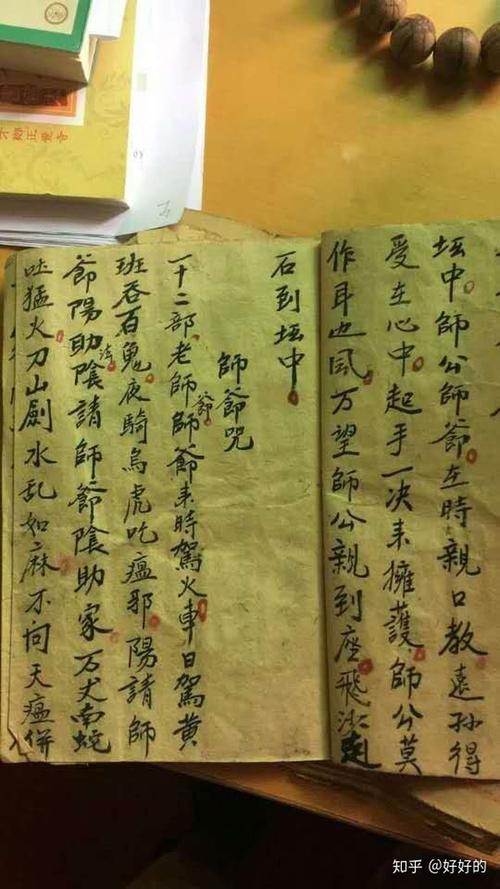 坛中師公師爺在時親口教遠孫得
受在心中起手一决来擁護師公莫
作耳边風万望師公親到座飛沙走
石到坛中
師爺咒
一十二部老師師爺爺来時駕火車日駕黄
班吞百鬼夜騎烏虎吃瘟邪陽請師
爺陽助陰法請師爺陰助家万丈南蛇
吐猛火刀山劍水乱如麻不问天瘟併
知乎 @好好的